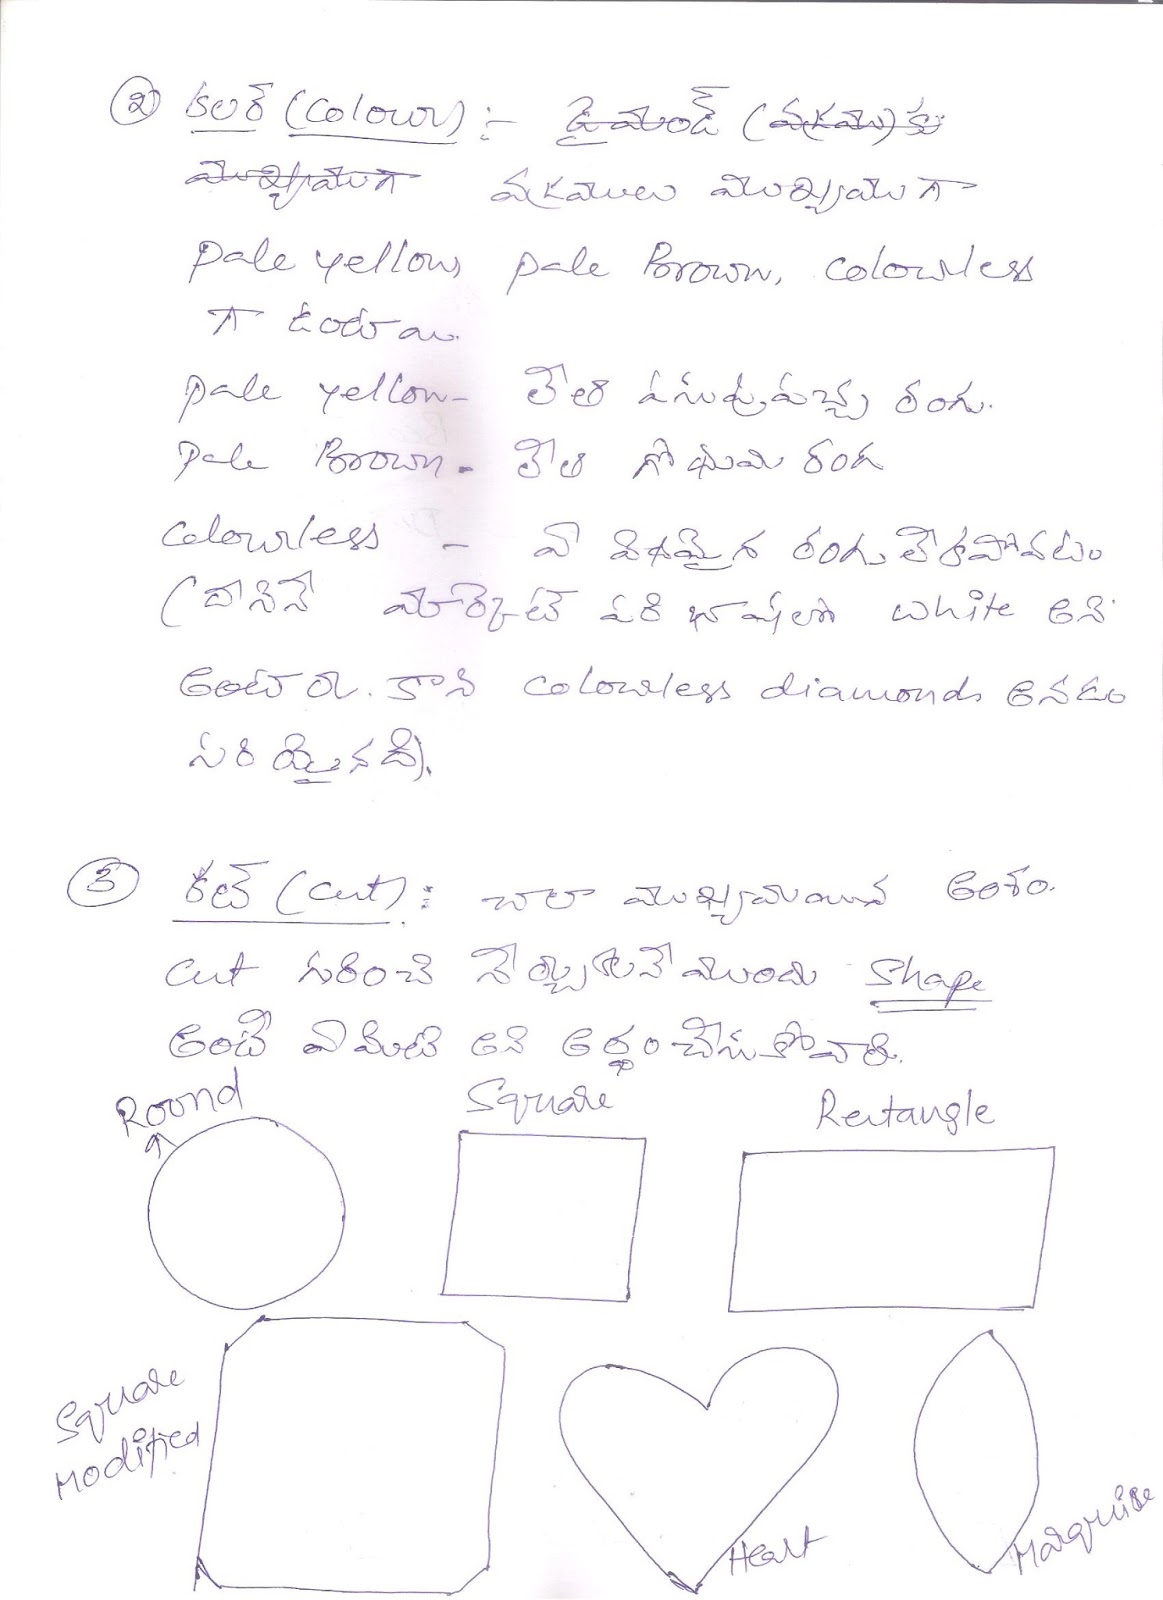 ② కలర్ (Colour) :- డైమండ్ (వజ్రము) కు
ముఖ్యముగా వజ్రములు ముఖ్యముగా
pale yellow, pale Brown, colourless
గా ఉంటాయి.
pale yellow - లేత పసుపుపచ్చ రంగు.
pale Brown - లేత గోధుమ రంగు
colourless - ఏ విధమైన రంగు లేకపోవటం
(దానినే మార్కెట్ పరిభాషలో white అని
అంటారు. కాని colourless diamonds అనడం
సరియైనది).
③ కట్ (cut) : చాలా ముఖ్యమయిన అంశం.
cut గురించి నేర్చుకునేముందు shape
అంటే ఏమిటి అని అర్థంచేసుకోవాలి.
Round Square Rectangle
Square Modified
Heart
Marquise